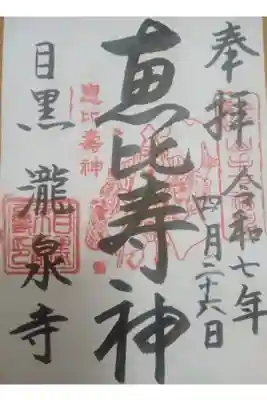 奉拝
令和七年
四月二十六日
恵比寿神
恵比寿神
目黒 瀧泉寺